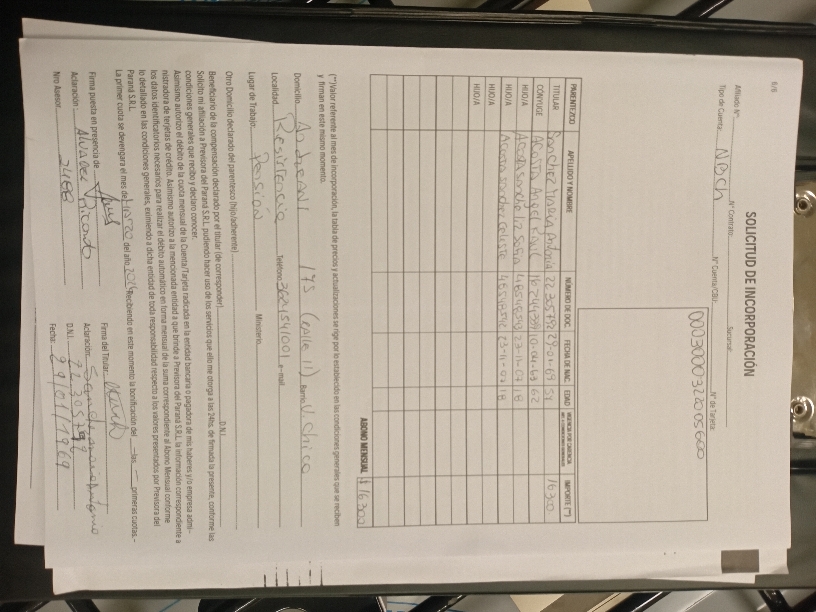 6/6
SOLICITUD DE INCORPORACIÓN
Afiliado Nº: Nº Contrato: Sucursal: Nº de Tarjeta:
Tipo de Cuenta: NBSCH Nº Cuenta/CBU:
PARENTEZCO APELLIDO Y NOMBRE NÚMERO DE DOC. FECHA DE NAC. EDAD IMPORTE (**)
TITULAR Sanchez Maria Antonia 22.305.792 29-01-69 16300
CONYUGE Acosta Angel Raul 62
HIJO/A Acosta Sanchez Sofia 23-11-07 18
HIJO/A Acosta Sanchez Celeste 23-11-07 18
HIJO/A
HIJO/A
ABONO MENSUAL $ 16300
(**)Valor referente al mes de incorporación, la tabla de precios y actualizaciones se rige por lo establecido en las condiciones generales que se reciben
y firman en este mismo momento.
Domicilio: 175 (calle 11) Barrio: V. Chica
Localidad: Resistencia Teléfono: e-mail:
Lugar de Trabajo: Pensión Ministerio:
Otro Domicilio declarado del parentesco (hijo/adherente)
Beneficiario de la compensación declarado por el titular (de corresponder) D.N.I.
Solicito mi afiliación a Previsora del Paraná S.R.L. pudiendo hacer uso de los servicios que ello me otorga a las 24hs. de firmada la presente, conforme las
condiciones generales que recibo y declaro conocer.
Asimismo autorizo el débito de la cuota mensual de la Cuenta/Tarjeta radicada en la entidad bancaria o pagadora de mis haberes y/o empresa admi-
nistradora de tarjetas de crédito. Asimismo autorizo a la mencionada entidad a que brinde a Previsora del Paraná S.R.L. la información correspondiente a
los datos identificatorios necesarios para realizar el débito automático en forma mensual de la suma correspondiente al Abono Mensual conforme
lo detallado en las condiciones generales, eximiendo a dicha entidad de toda responsabilidad respecto a los valores presentados por Previsora del
Paraná S.R.L.
La primer cuota se devengara el mes de Marzo del año Recibiendo en este momento la bonificación del — las — primeras cuotas.-
Firma puesta en presencia de Firma del Titular:
Aclaración: Alvarez Ricardo Aclaración:
Nro Asesor: 2488 D.N.I.: 22.305.792
Fecha: 29/01/1969